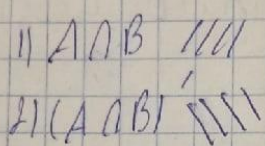 1) A ∩ B ////
2) (A ∩ B)' \\\\